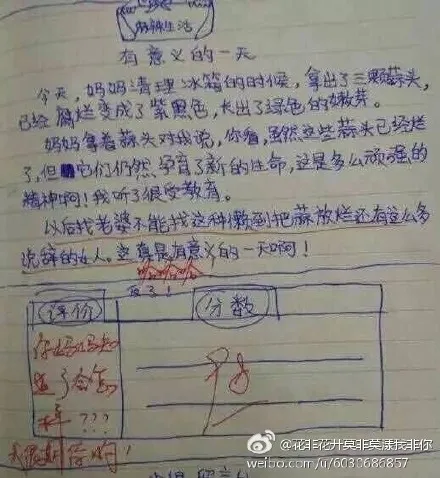 麻辣生活
有意义的一天
今天，妈妈清理冰箱的时候，拿出了三颗蒜头，
已经腐烂变成了紫黑色，长出了绿色的嫩芽。
妈妈拿着蒜头对我说，你看，虽然这些蒜头已经烂
了，但它们仍然孕育了新的生命，这是多么顽强的
精神啊！我听了很受教育。
以后找老婆不能找这种懒到把蒜放烂还有这么多
说辞的女人。这真是有意义的一天啊！
哈哈哈
评价
分数
你妈妈知
道了会怎
样？？？
@花非花卉莫非莫漾找非你
weibo.com/u/6030686857